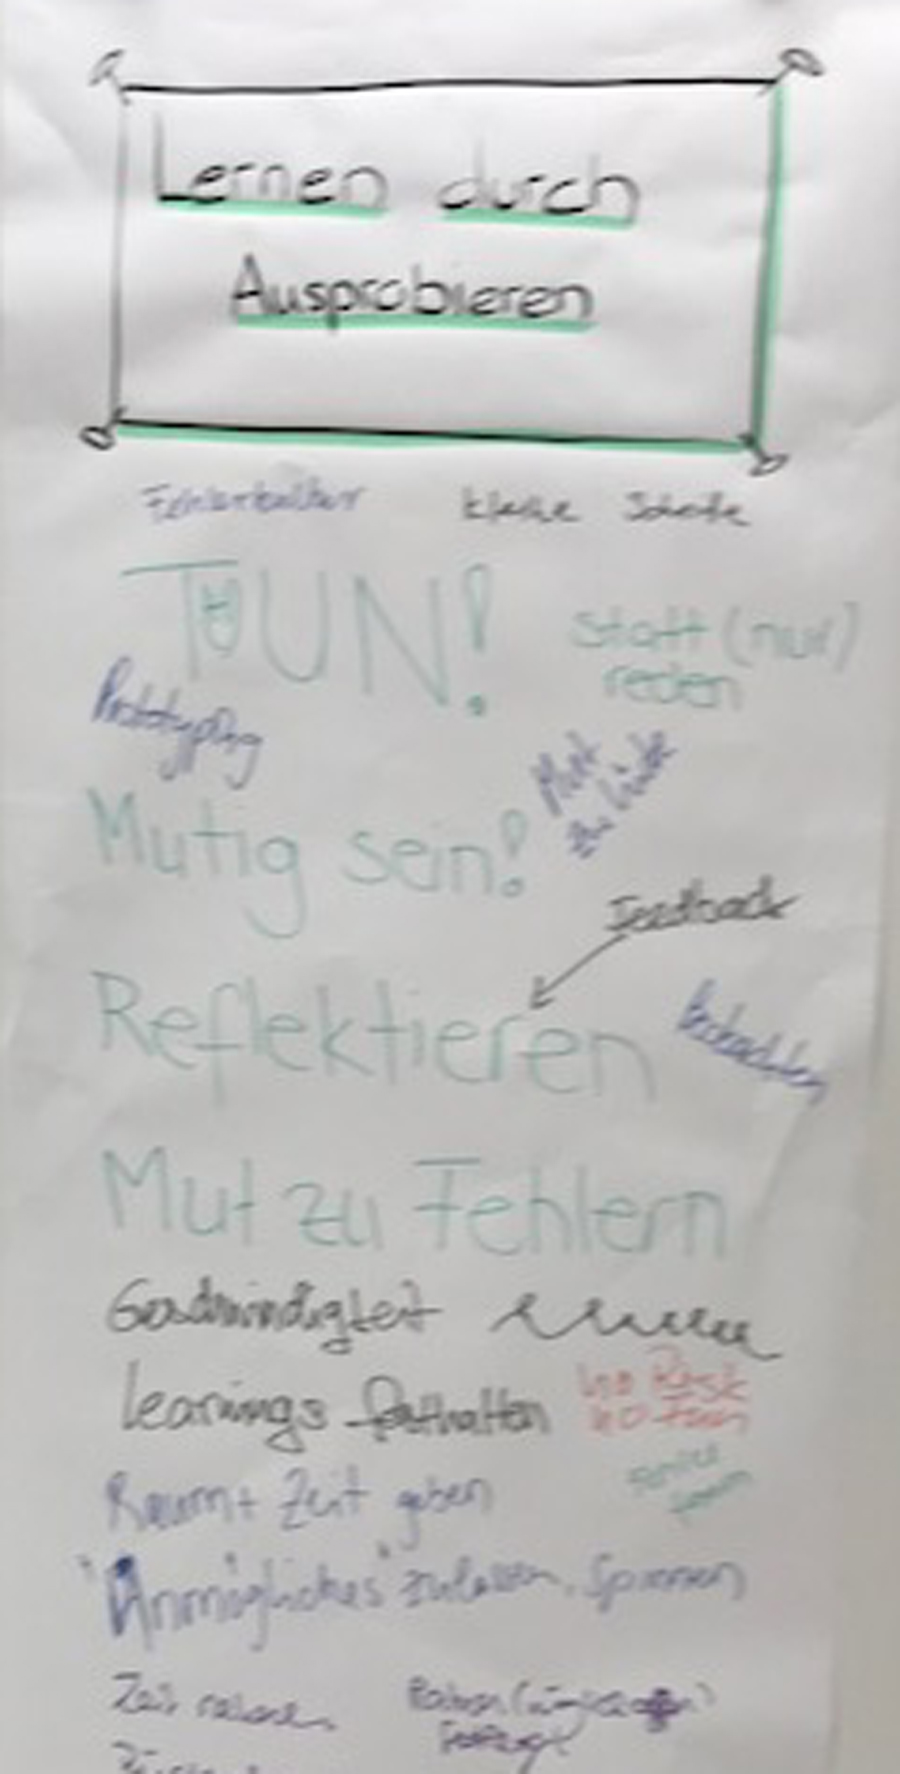 Lernen durch
Ausprobieren
Fehlerkultur kleine Schritte
TUN! statt (nur)
reden
Prototyping
Mut
zur Lücke
Mutig sein!
Feedback
Reflektieren
Beobachten
Mut zu Fehlern
Geschwindigkeit
Learnings festhalten
no Risk
no Fun
Raum + Zeit geben
"Unmögliches" zulassen, Spinnen
Zeit nehmen